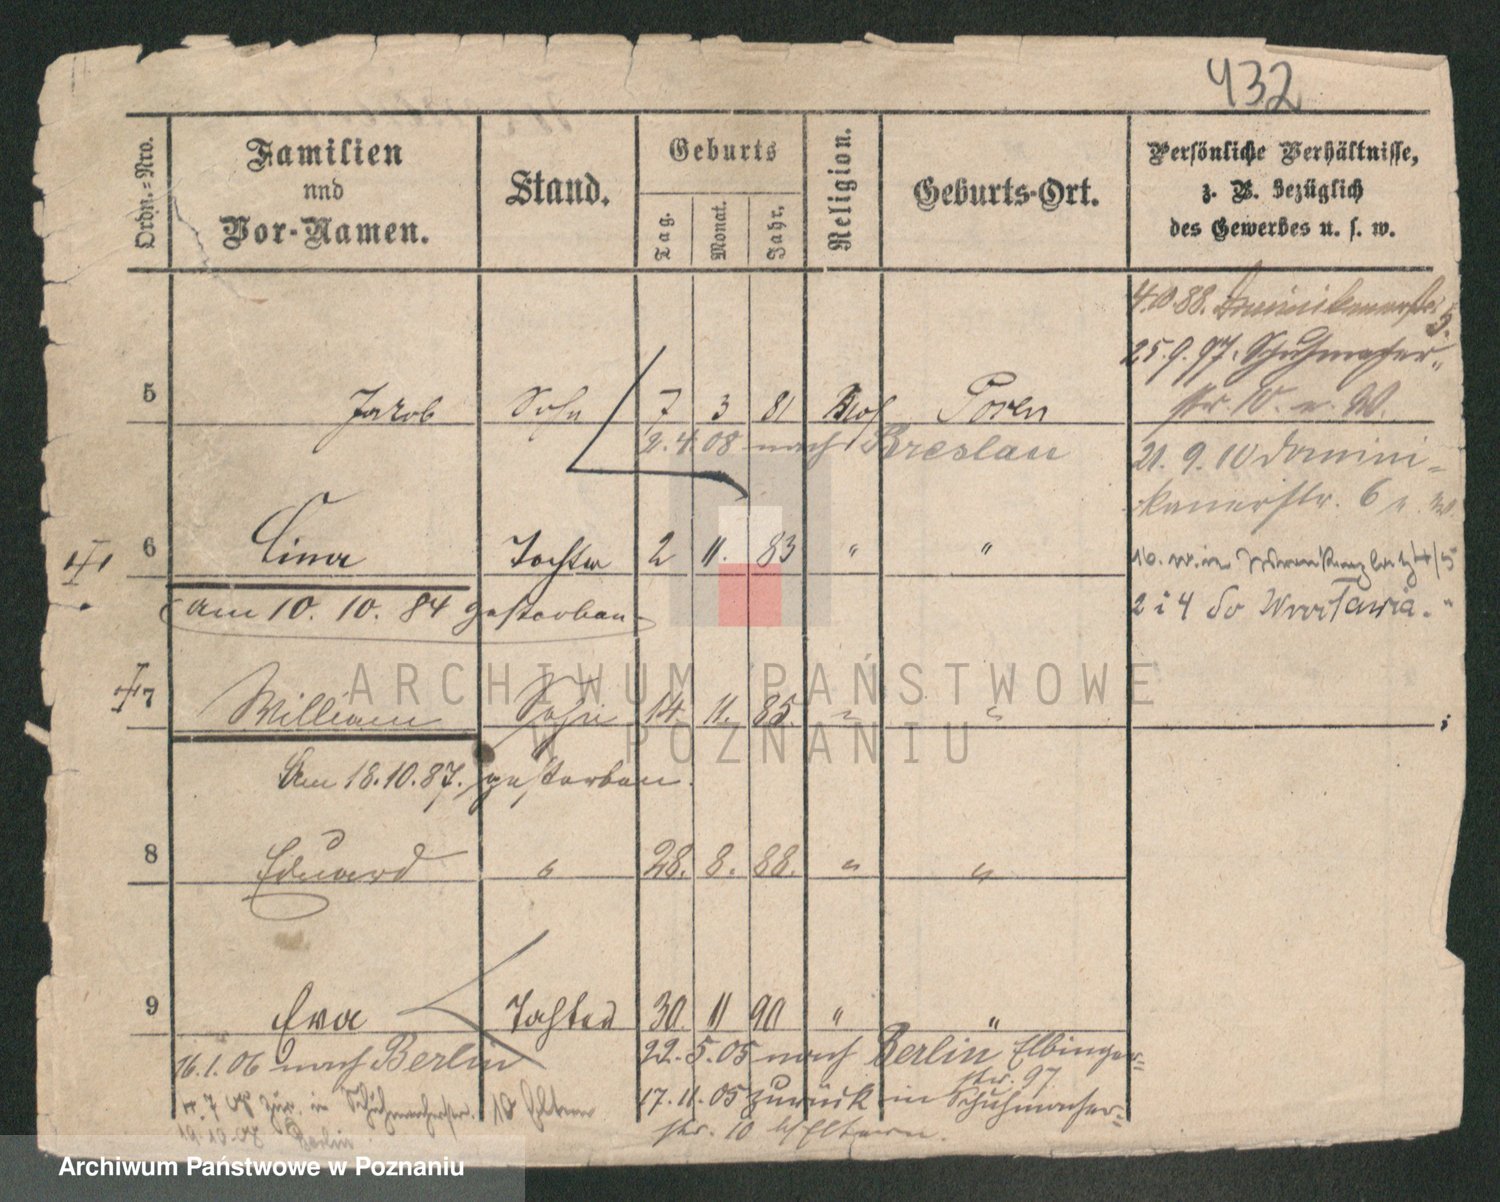 432
Ordn.=Nro.
Familien
und
Vor-Namen.
Stand.
Geburts
Tag.
Monat.
Jahr.
Religion.
Geburts-Ort.
Persönliche Verhältnisse,
z. B. bezüglich
des Gewerbes u. s. w.
4.10.88. Dominikanerstr.
5.
25.9.97. Schuhmacher-
str. 10. u. W.
5 Jacob Sohn 7 3 81 Mos Posen
2.4.08 nach Breslau
21. 9. 10 Domini-
kanerstr. 6 u. W.
6 Lina Tochter 2 11. 83 " "
am 10. 10. 84 gestorben
2 i 4 do
7 William Sohn 14. 11. 85. " "
Am 18.10.87. gestorben.
8 Eduard " 28. 8. 88. " "
9 Eva Tochter 30. 11 90 " "
16.1.06 nach Berlin
22.5.05 nach Berlin Elbinger-
str. 97
4.7 07 zur. in Schuhmacherstr. 10 Eltern
17.11.05 zurück in Schuhmacher-
19.10.07 Berlin
str. 10 b/Eltern.
ARCHIWUM PAŃSTWOWE
W POZNANIU
Archiwum Państwowe w Poznaniu